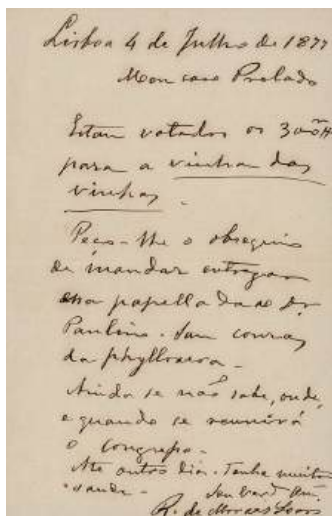 Lisboa 4 de Julho de 1877
Meu caro Prelado
Estam votados os
para a vinha das
vinhas.
Peço-lhe o obsequio
de mandar entregar
essa papellada ao Dr.
Paulino. Sam cousas
da phylloxera.
Ainda se não sabe, onde,
e quando se reunirá
o congresso.
Até outro dia. Tenha muita
saude.
R. de Moraes Soares